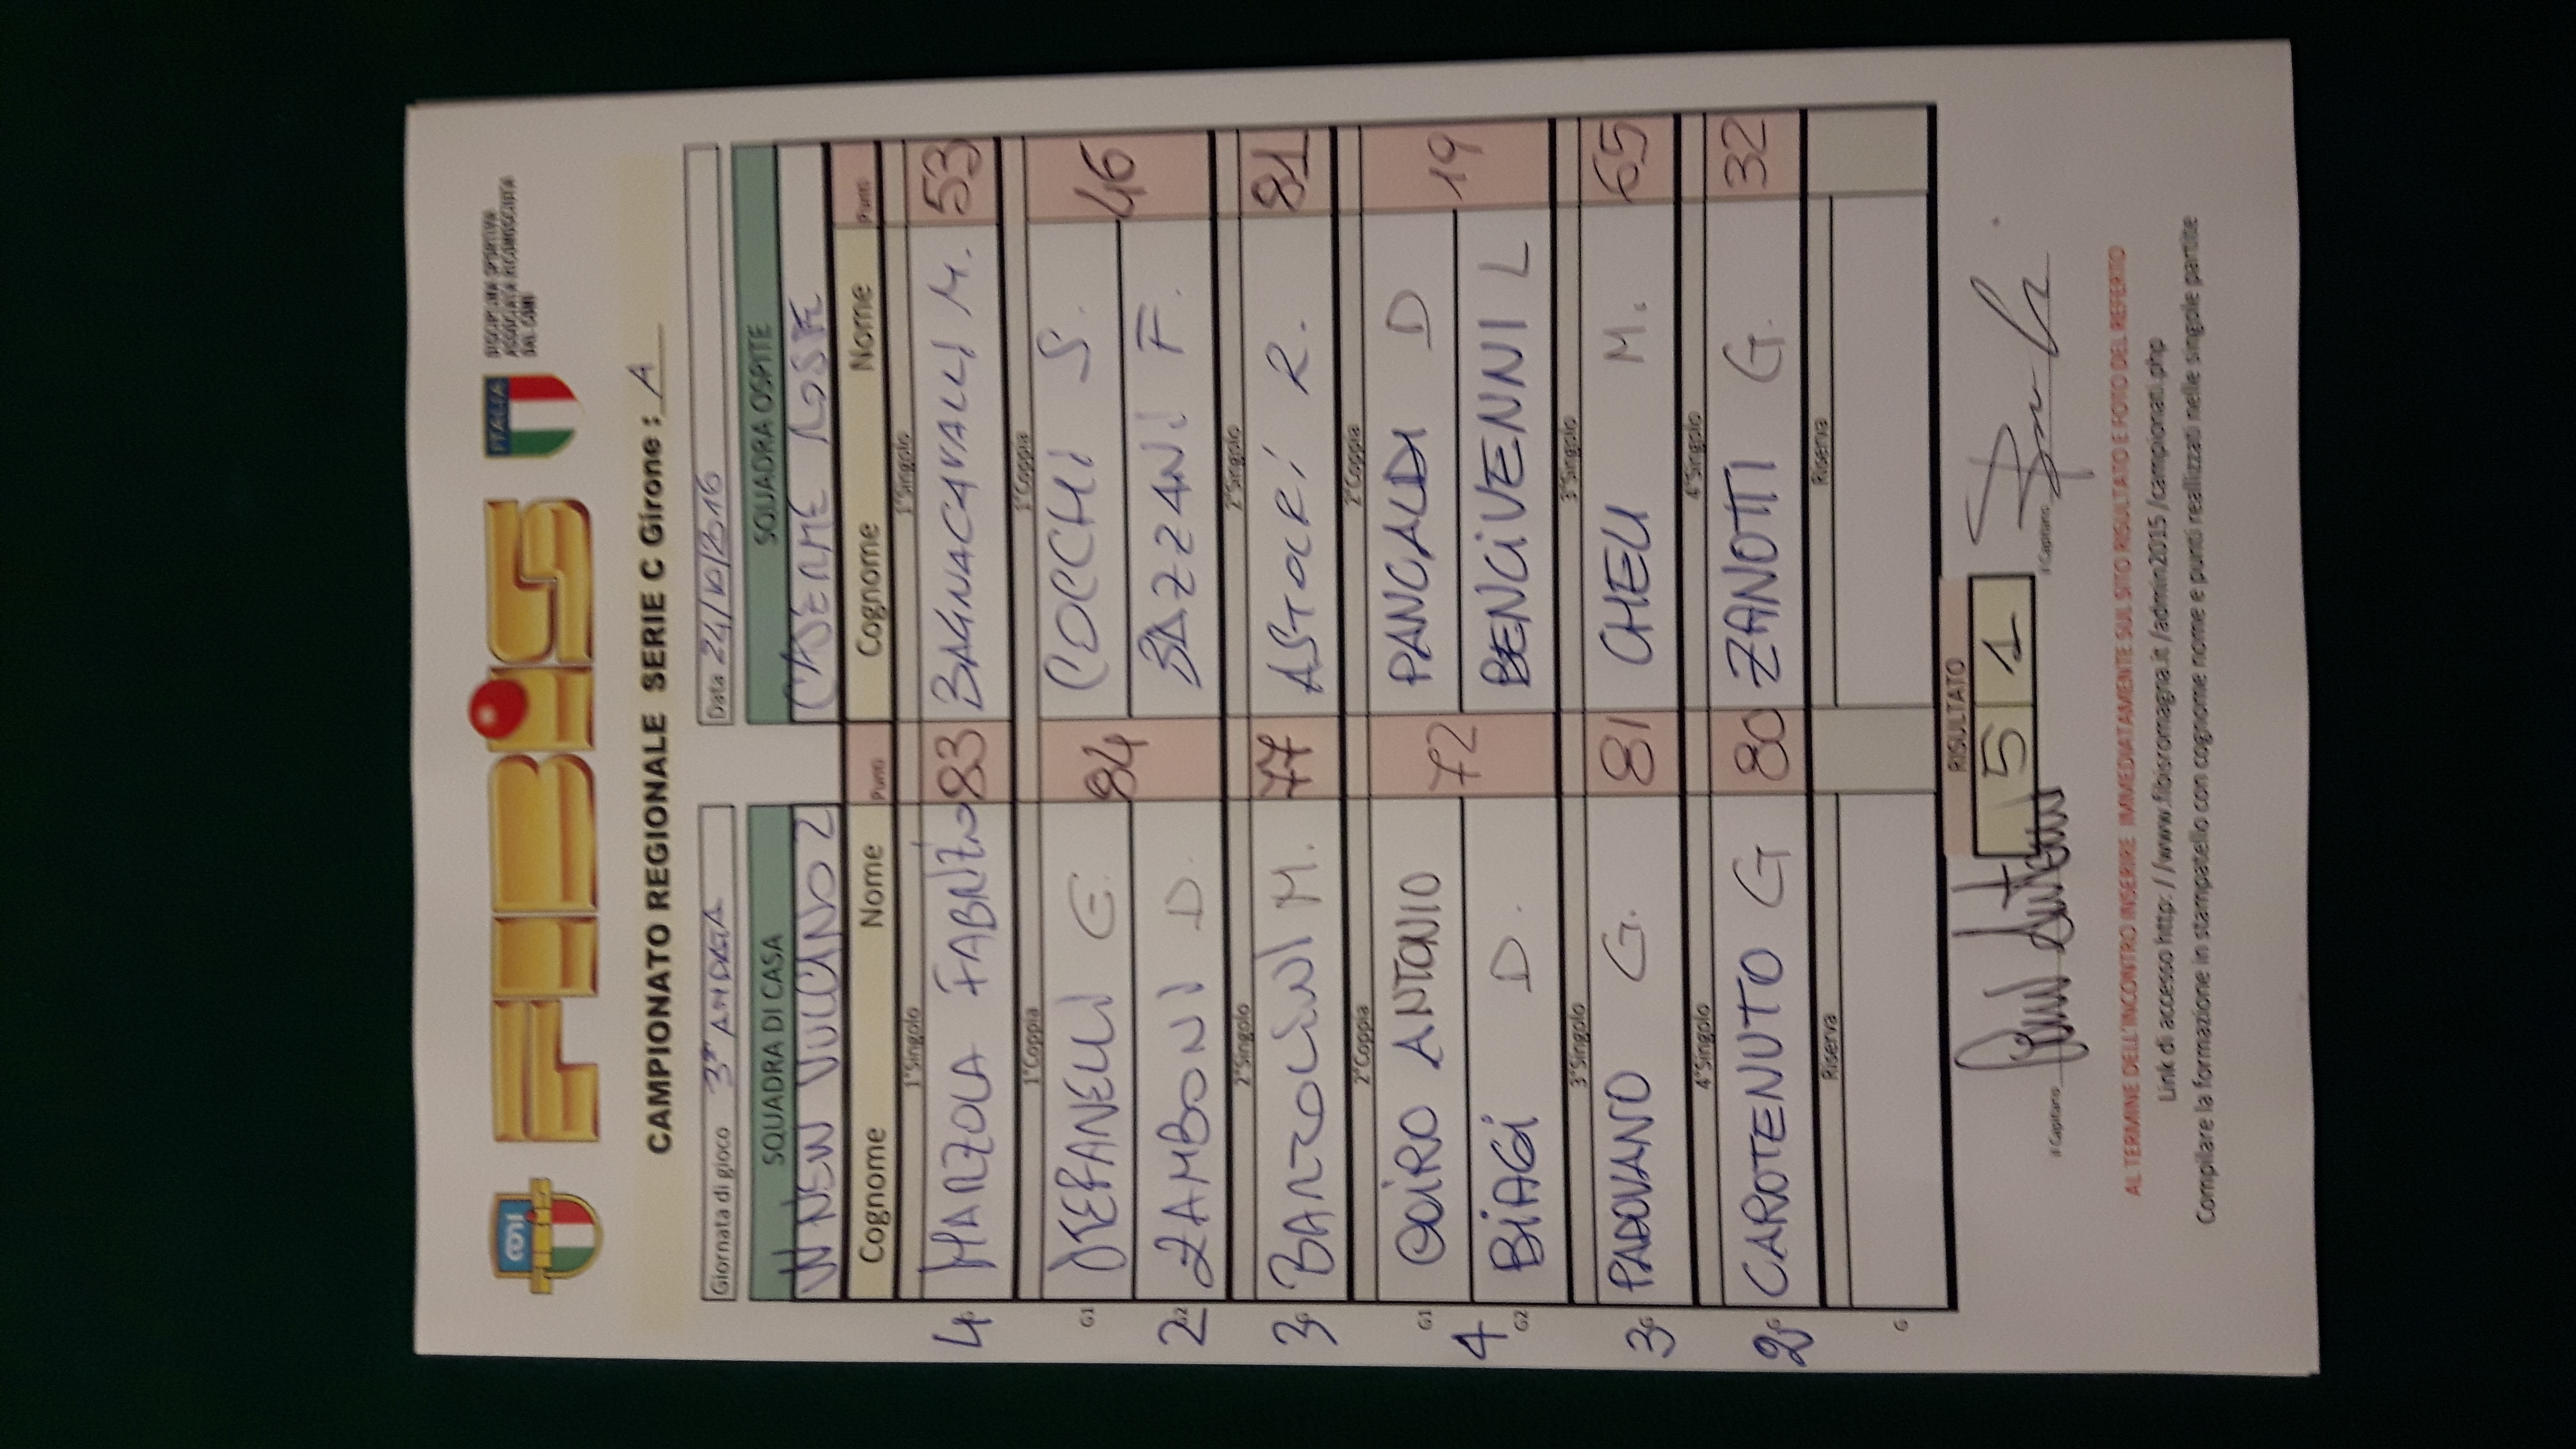 CONI
FIBiS
ITALIA
DISCIPLINA SPORTIVA
ASSOCIATA RICONOSCIUTA
DAL CONI
CAMPIONATO REGIONALE SERIE C Girone : A
Giornata di gioco 3ª ANDATA Data 24/10/2016
SQUADRA DI CASA SQUADRA OSPITE
W NEW VULCANO 2 CASERME ROSSE
Cognome Nome Punti Cognome Nome Punti
1°Singolo 1°Singolo
4 G MANZOLA FABRIZIO 83 BAGNACAVALLI M. 53
1°Coppia 1°Coppia
G1 DEFRANELLI G. 84 COCCHI S. 46
2 G2 ZAMBONI D. BAZZANI F.
2°Singolo 2°Singolo
3 G BARTOLINI M. 77 ASTORRI R. 81
2°Coppia 2°Coppia
G1 COIRO ANTONIO 72 PANCALDI D 19
4 G2 BIAGI D. BENCIVENNI L
3°Singolo 3°Singolo
3 G PADOVANO G. 81 CHELI M. 65
4°Singolo 4°Singolo
2 G CAROTENUTO G 80 ZANOTTI G. 32
Riserva Riserva
G
RISULTATO
5 1
Il Capitano Il Capitano
AL TERMINE DELL'INCONTRO INSERIRE IMMEDIATAMENTE SUL SITO RISULTATO E FOTO DEL REFERTO
Link di accesso http://www.fibisromagna.it/admin2015/campionati.php
Compilare la formazione in stampatello con cognome nome e punti reallizzati nelle singole partite